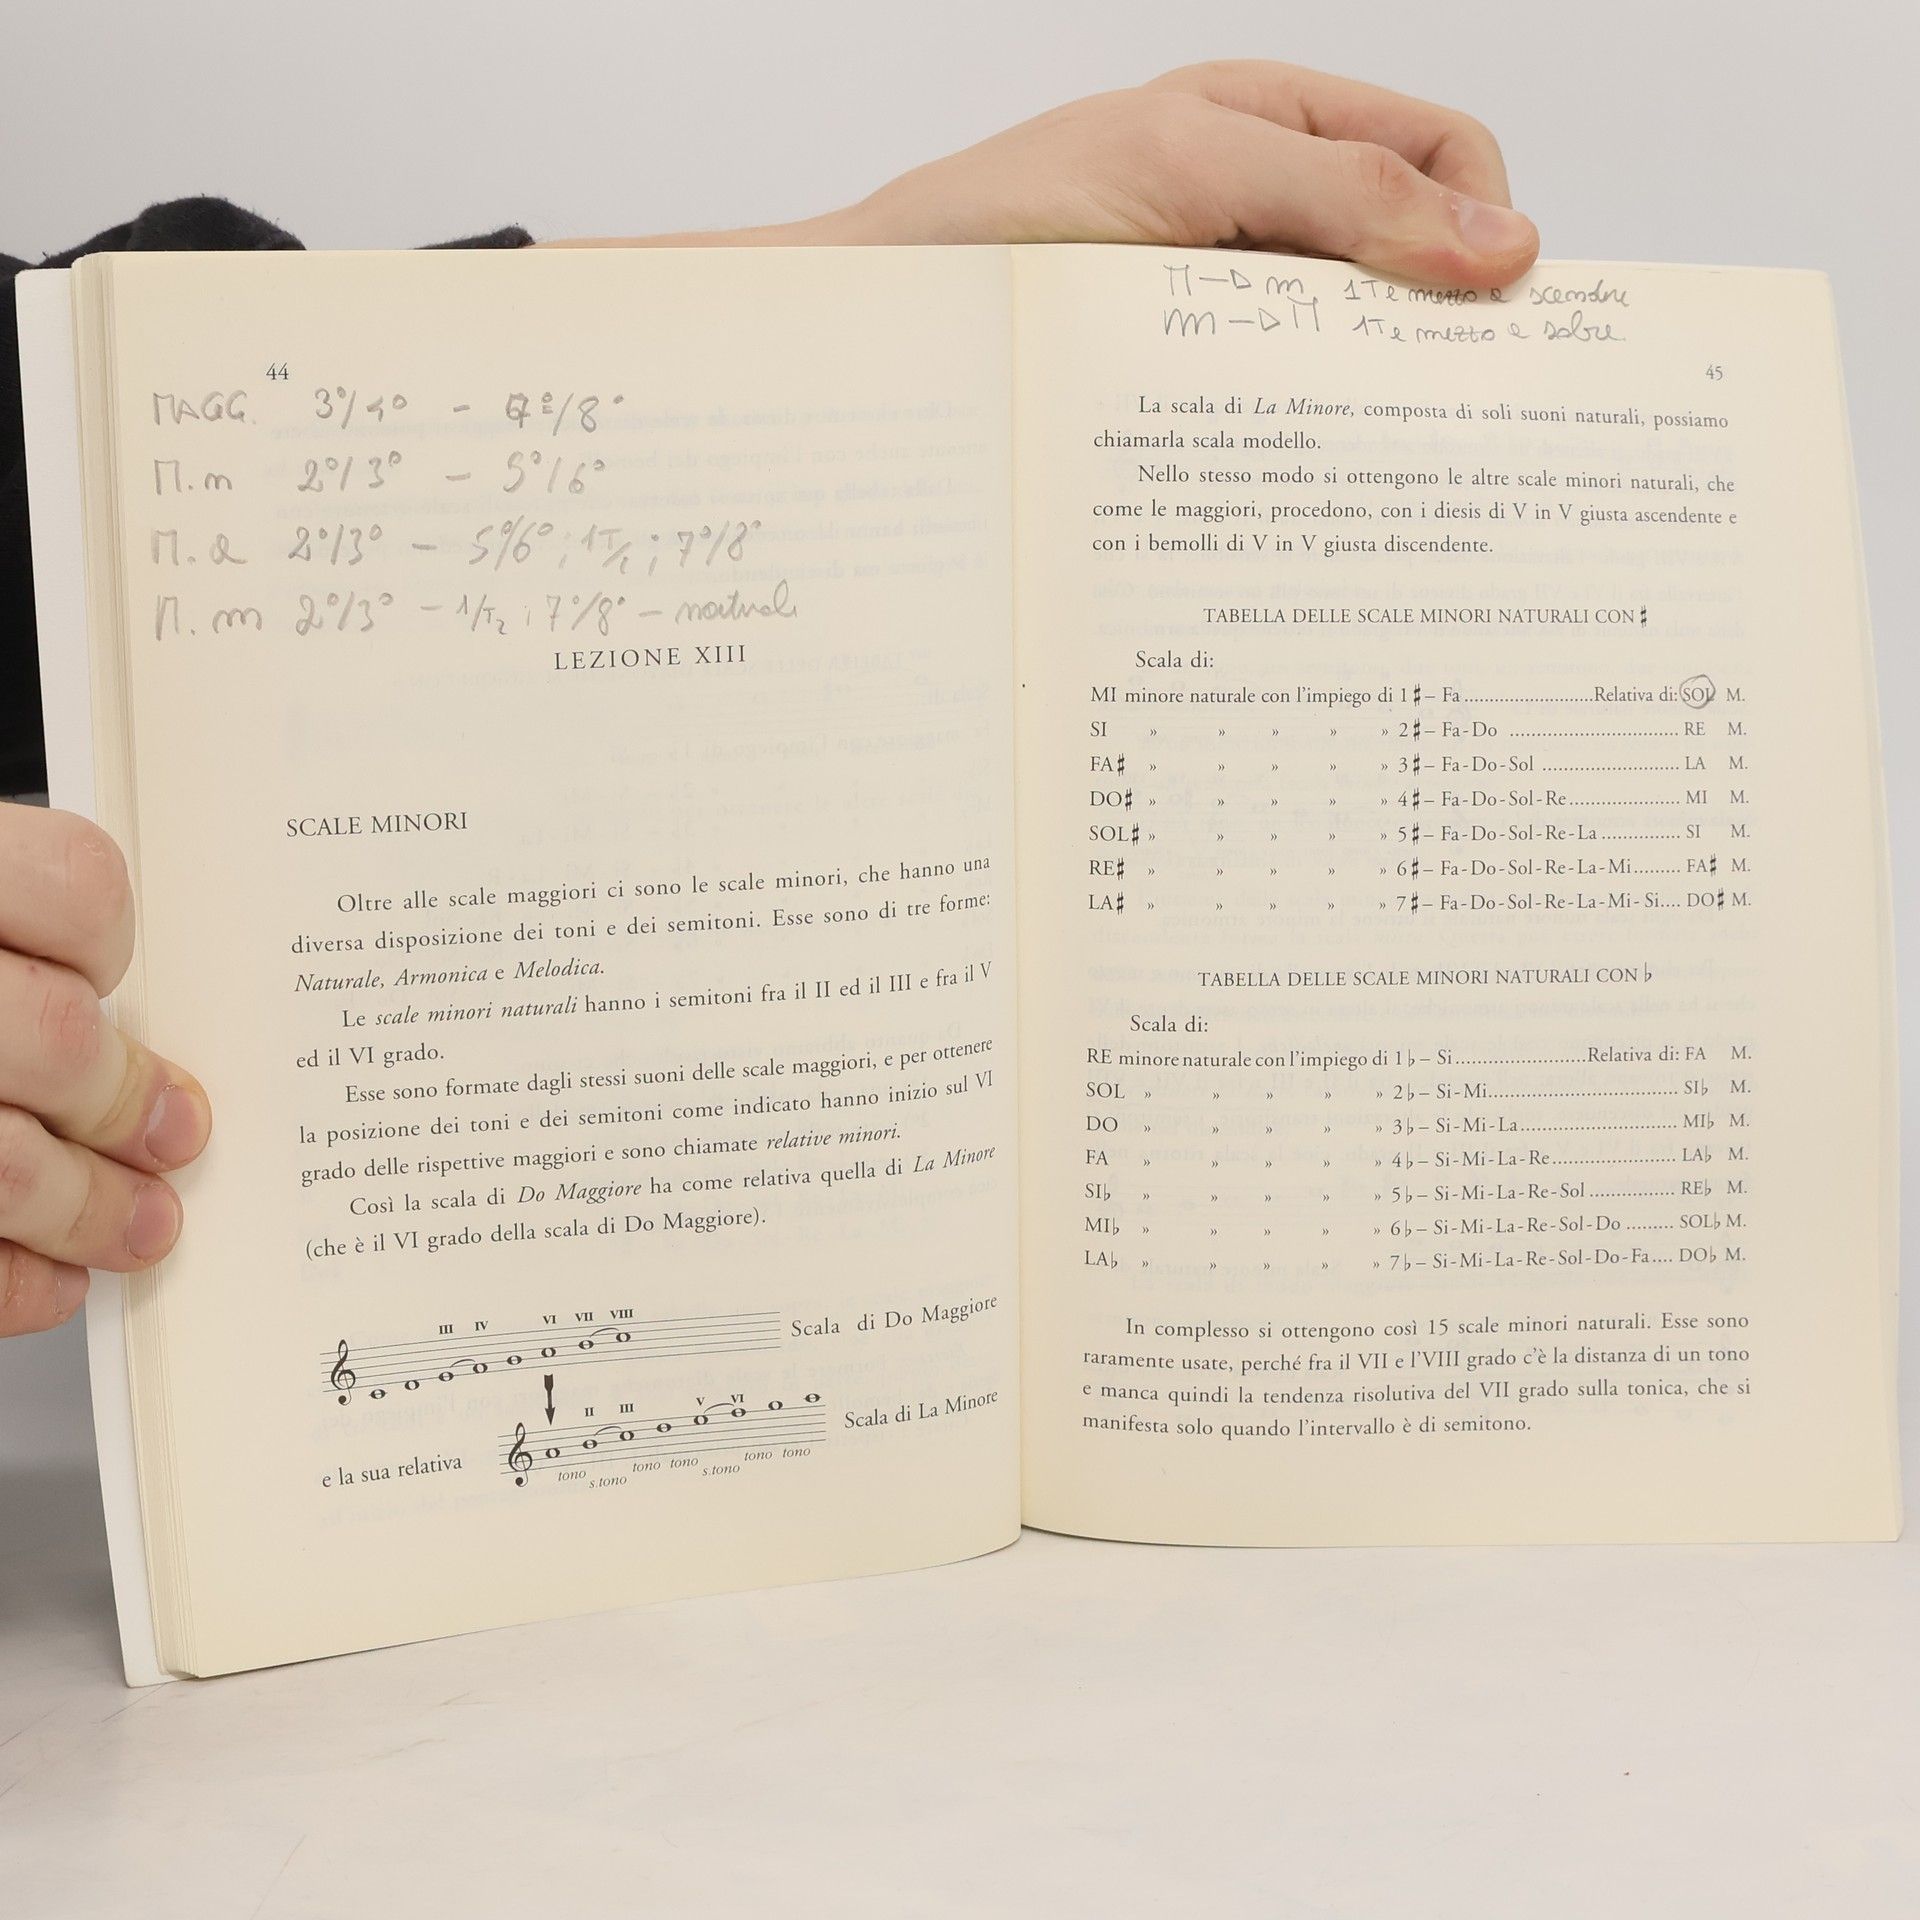 44
MAGG. 3°/4° - 7°/8°
M.n 2°/3° - 5°/6°
M.a 2°/3° - 5°/6° ; ; 7°/8°
M.m 2°/3° - ; 7°/8° - naturale
LEZIONE XIII
SCALE MINORI
Oltre alle scale maggiori ci sono le scale minori, che hanno una
diversa disposizione dei toni e dei semitoni. Esse sono di tre forme:
Naturale, Armonica e Melodica.
Le scale minori naturali hanno i semitoni fra il II ed il III e fra il V
ed il VI grado.
Esse sono formate dagli stessi suoni delle scale maggiori, e per ottenere
la posizione dei toni e dei semitoni come indicato hanno inizio sul VI
grado delle rispettive maggiori e sono chiamate relative minori.
Così la scala di Do Maggiore ha come relativa quella di La Minore
(che è il VI grado della scala di Do Maggiore).
III IV VI VII VIII
Scala di Do Maggiore
II III V VI
Scala di La Minore
e la sua relativa
tono s.tono tono tono s.tono tono tono
M → m 1T e mezzo a scendere
m → M 1T e mezzo a salire
45
La scala di La Minore, composta di soli suoni naturali, possiamo
chiamarla scala modello.
Nello stesso modo si ottengono le altre scale minori naturali, che
come le maggiori, procedono, con i diesis di V in V giusta ascendente e
con i bemolli di V in V giusta discendente.
TABELLA DELLE SCALE MINORI NATURALI CON ♯
Scala di:
MI minore naturale con l'impiego di 1 ♯ – Fa ......................... Relativa di: SOL M.
SI » » » » » 2 ♯ – Fa - Do ................................. RE M.
FA♯ » » » » » 3 ♯ – Fa - Do - Sol ........................... LA M.
DO♯ » » » » » 4 ♯ – Fa - Do - Sol - Re ...................... MI M.
SOL♯ » » » » » 5 ♯ – Fa - Do - Sol - Re - La ............... SI M.
RE♯ » » » » » 6 ♯ – Fa - Do - Sol - Re - La - Mi ......... FA♯ M.
LA♯ » » » » » 7 ♯ – Fa - Do - Sol - Re - La - Mi - Si .... DO♯ M.
TABELLA DELLE SCALE MINORI NATURALI CON ♭
Scala di:
RE minore naturale con l'impiego di 1 ♭ – Si .......................... Relativa di: FA M.
SOL » » » » » 2 ♭ – Si - Mi ..................................... SI♭ M.
DO » » » » » 3 ♭ – Si - Mi - La ............................... MI♭ M.
FA » » » » » 4 ♭ – Si - Mi - La - Re ........................ LA♭ M.
SI♭ » » » » » 5 ♭ – Si - Mi - La - Re - Sol ................ RE♭ M.
MI♭ » » » » » 6 ♭ – Si - Mi - La - Re - Sol - Do ......... SOL♭ M.
LA♭ » » » » » 7 ♭ – Si - Mi - La - Re - Sol - Do - Fa .... DO♭ M.
In complesso si ottengono così 15 scale minori naturali. Esse sono
raramente usate, perché fra il VII e l'VIII grado c'è la distanza di un tono
e manca quindi la tendenza risolutiva del VII grado sulla tonica, che si
manifesta solo quando l'intervallo è di semitono.